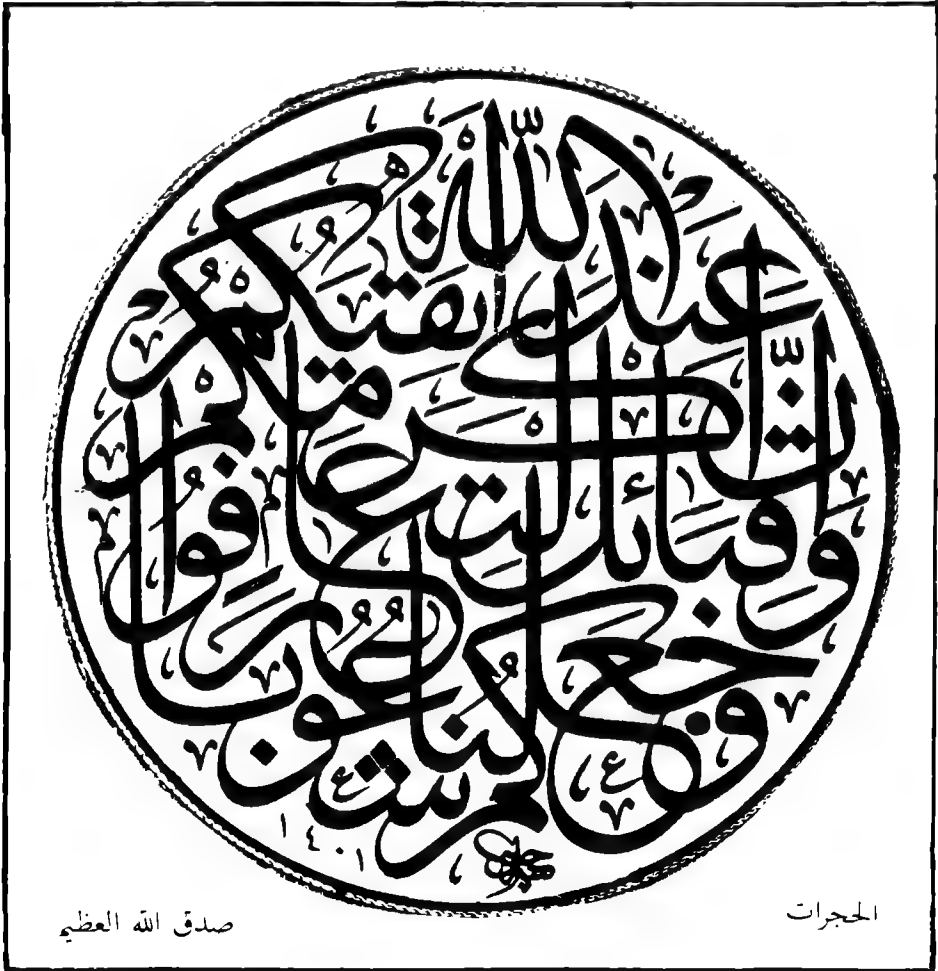 وَجَعَلْنَاكُمْ شُعُوبًا
وَقَبَائِلَ لِتَعَارَفُوا
اِنَّ اَكْرَمَكُمْ
عِنْدَ اللّٰهِ اَتْقٰيكُمْ
١٤٠١
الحجرات
صدق الله العظيم